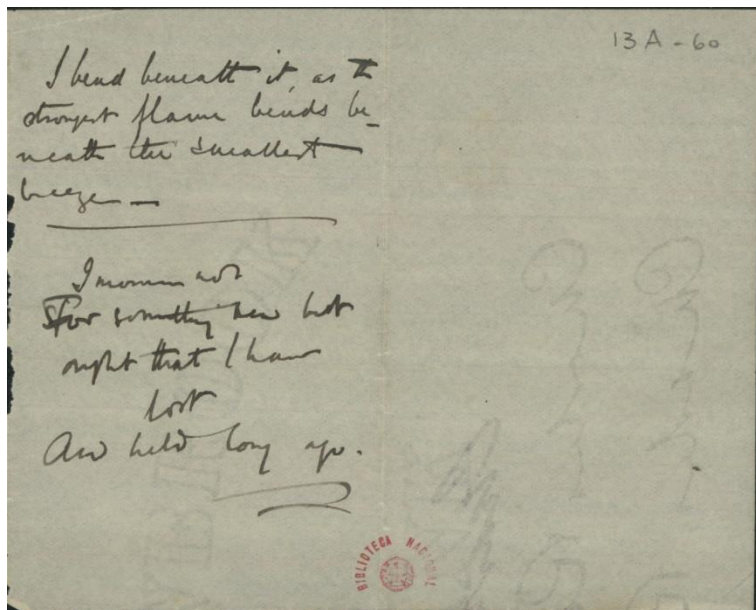 13 A - 60
I bend beneath it, as the
strongest flame bends be-
neath the smallest
breeze —
I mourn not
For something new but
ought that I have
lost
And held long ago.
BIBLIOTECA NACIONAL